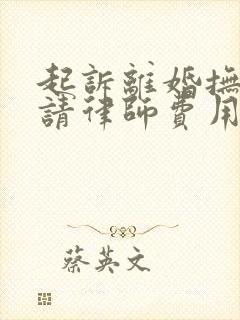 起訴離婚撫
請律師費用
蔡英文